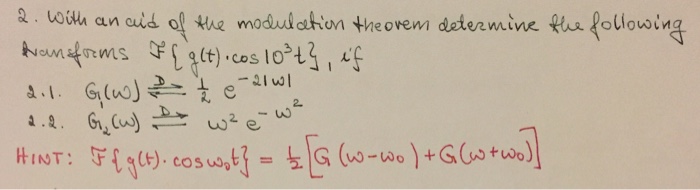 2. With an aid of the modulation theorem determine the following
transforms F{g(t)·cos10³t}, if
2.1. G₁(ω) D⇌ ½ e^-2|ω|
2.2. G₂(ω) D⇌ ω² e^-ω²
HINT: F{g(t)·cosω₀t} = ½[G(ω-ω₀)+G(ω+ω₀)]